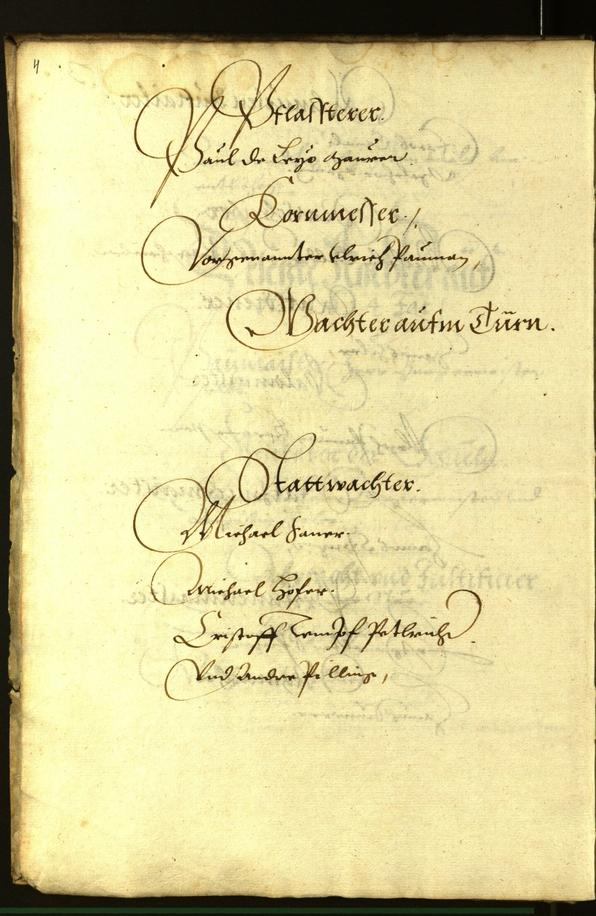 4
Pflassterer.
Paul de Leyo Maurer.
Kornmesser./
Vorgenannter Ulrich Pauman,
Wachter aufm Türn.
Stattwachter.
Michael
Michael Hofer.
Cristoff
Vnd Andre Pilling,